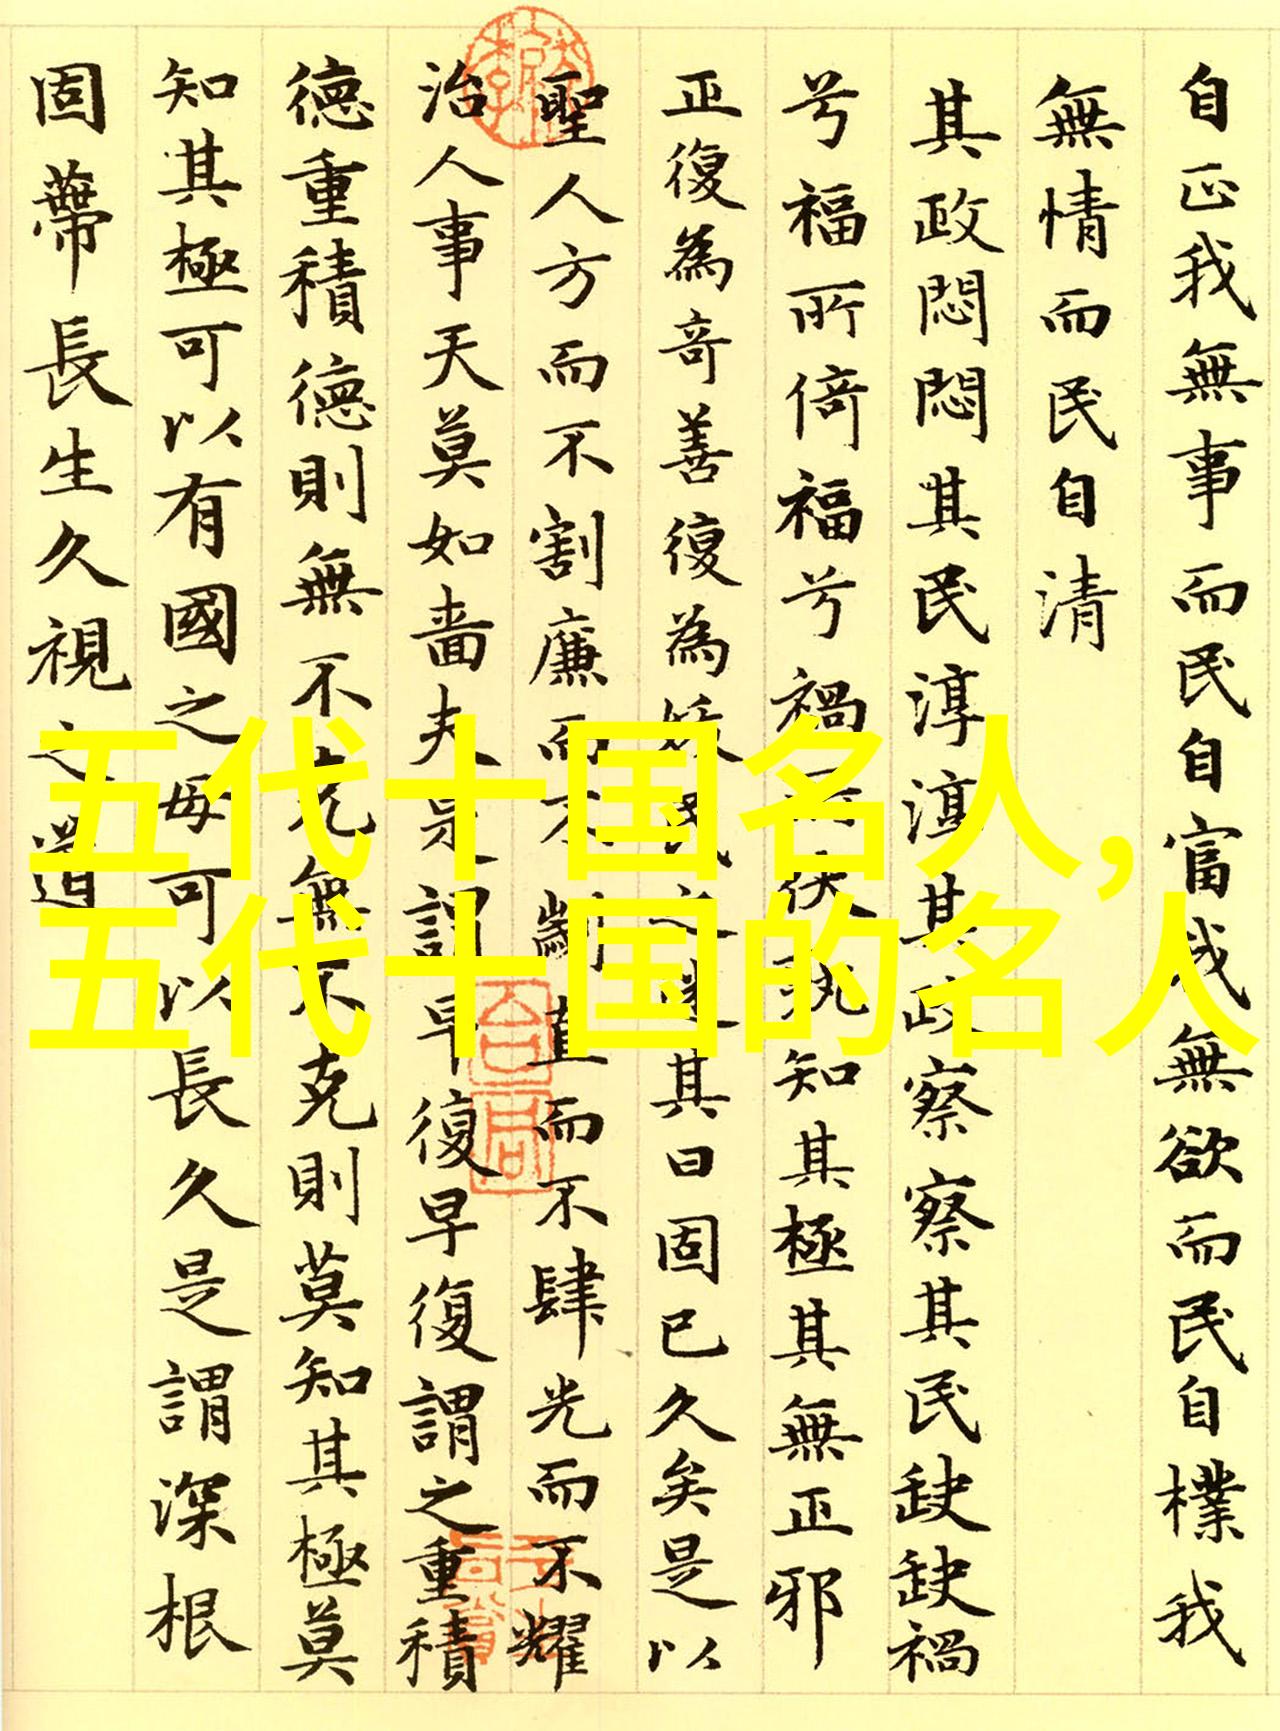 自正我無事而民自富我無欲而民自樸我
無情而民自清
其政悶悶其民淳淳其政察察其民缺缺禍
兮福所倚福兮禍所伏孰知其極其無正邪
正復為奇善復為妖民之迷其日固已久矣是以
聖人方而不割廉而不劌直而不肆光而不耀
治人事天莫如嗇夫是謂早復早復謂之重積
德重積德則無不克無不克則莫知其極莫
知其極可以有國之母可以長久是謂深根
固蔕長生久視之道
五代十国名人，
五代十国的名人